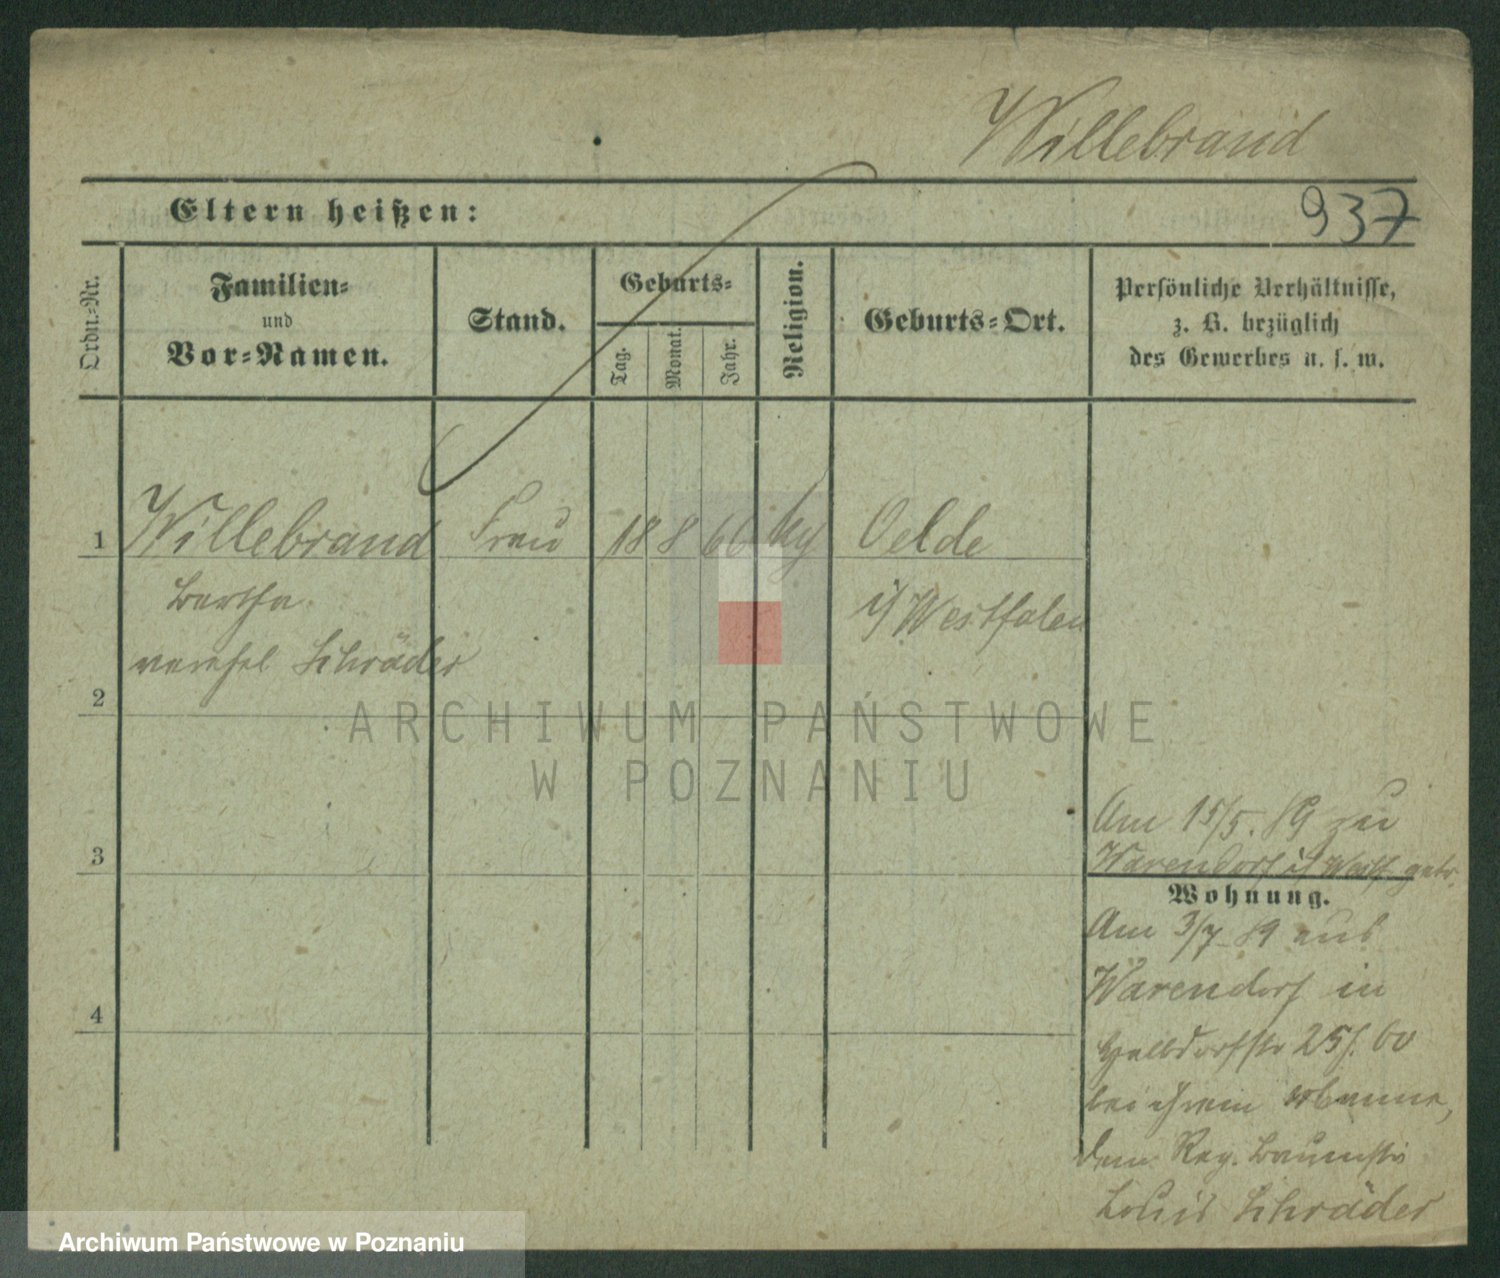 Willebrand
Eltern heißen:
937
Ordn.-Nr.
Familien-
und
Vor-Namen.
Stand.
Geburts-
Tag.
Monat.
Jahr.
Religion.
Geburts-Ort.
Persönliche Verhältnisse,
z. B. bezüglich
des Gewerbes u. s. w.
1 Willebrand Frau 18 8 66 Oelde
Bertha i/ Westfalen
verehel Schräder
2
ARCHIWUM PAŃSTWOWE
W POZNANIU
3
4
Am 15/5. 89 zu
Warendorf i/ Westf. getr.
Wohnung.
Am 3/7 89 aus
Warendorf in
Halbdorfstr 25/.
bei ihrem
dem Reg. Baumstr
Louis Schräder
Archiwum Państwowe w Poznaniu